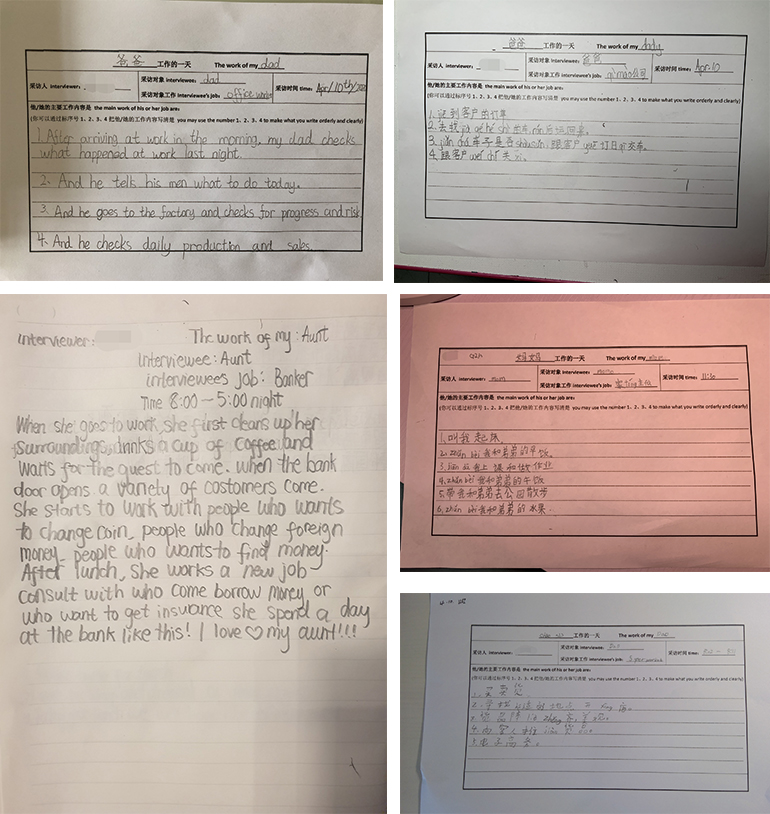 爸爸 工作的一天 The work of my dad
采访人 interviewer:
采访对象 interviewee: dad
采访对象工作 interviewee's job: office worker
采访时间 time: Apr/10th/
他/她的主要工作内容是 the main work of his or her job are:
(你可以通过标序号 1、2、3、4 把他/她的工作内容写清楚 you may use the number 1、2、3、4 to make what you write orderly and clearly)
1. After arriving at work in the morning, my dad checks
what happened at work last night.
2. And he tells his men what to do today.
3. And he goes to the factory and checks for progress and risk
4. And he checks daily production and sales.
爸爸 工作的一天 The work of my dady
采访人 interviewer:
采访对象 interviewee: 爸爸
采访对象工作 interviewee's job: qì mào公司
采访时间 time: Apr.10
他/她的主要工作内容是 the main work of his or her job are:
(你可以通过标序号 1、2、3、4 把他/她的工作内容写清楚 you may use the number 1、2、3、4 to make what you write orderly and clearly)
1. 收到客户的订单
2. 去找
3. jiǎn chá 车子是否 跟客户 日 交车。
4. 跟客户 wéi chí 关 xi。
Interviewer: The work of my: Aunt
Interviewee: Aunt
interviewees job: Banker
Time 8:00~5:00 night
When she goes to work, she first cleans up her
surroundings, drinks a cup of coffee and
waits for the guest to come. when the bank
door opens a variety of costomers come.
She starts to work with people who wants
to change coin, people who change foreign
money, people who wants to find money.
After lunch, she works a new job
consult with who come borrow money, or
who want to get insurance she spend a day
at the bank like this! I love ♡ my aunt!!!
妈妈 工作的一天 The work of my mom
采访人 interviewer: mum
采访对象 interviewee:
采访对象工作 interviewee's job: 家tíng主妇
采访时间 time: 11:30
他/她的主要工作内容是 the main work of his or her job are:
(你可以通过标序号 1、2、3、4 把他/她的工作内容写清楚 you may use the number 1、2、3、4 to make what you write orderly and clearly)
1. 叫我起床
2. zhǔn bèi 我和弟弟的早饭。
3. 上课和做作业
4. zhǔn bèi 我和弟弟的午饭
5. 带我和弟弟去公园散步
6. zhǔn bèi 我和弟弟的水果.
工作的一天 The work of my
采访人 interviewer:
采访对象 interviewee:
采访对象工作 interviewee's job:
采访时间 time:
他/她的主要工作内容是 the main work of his or her job are:
(你可以通过标序号 1、2、3、4 把他/她的工作内容写清楚 you may use the number 1、2、3、4 to make what you write orderly and clearly)